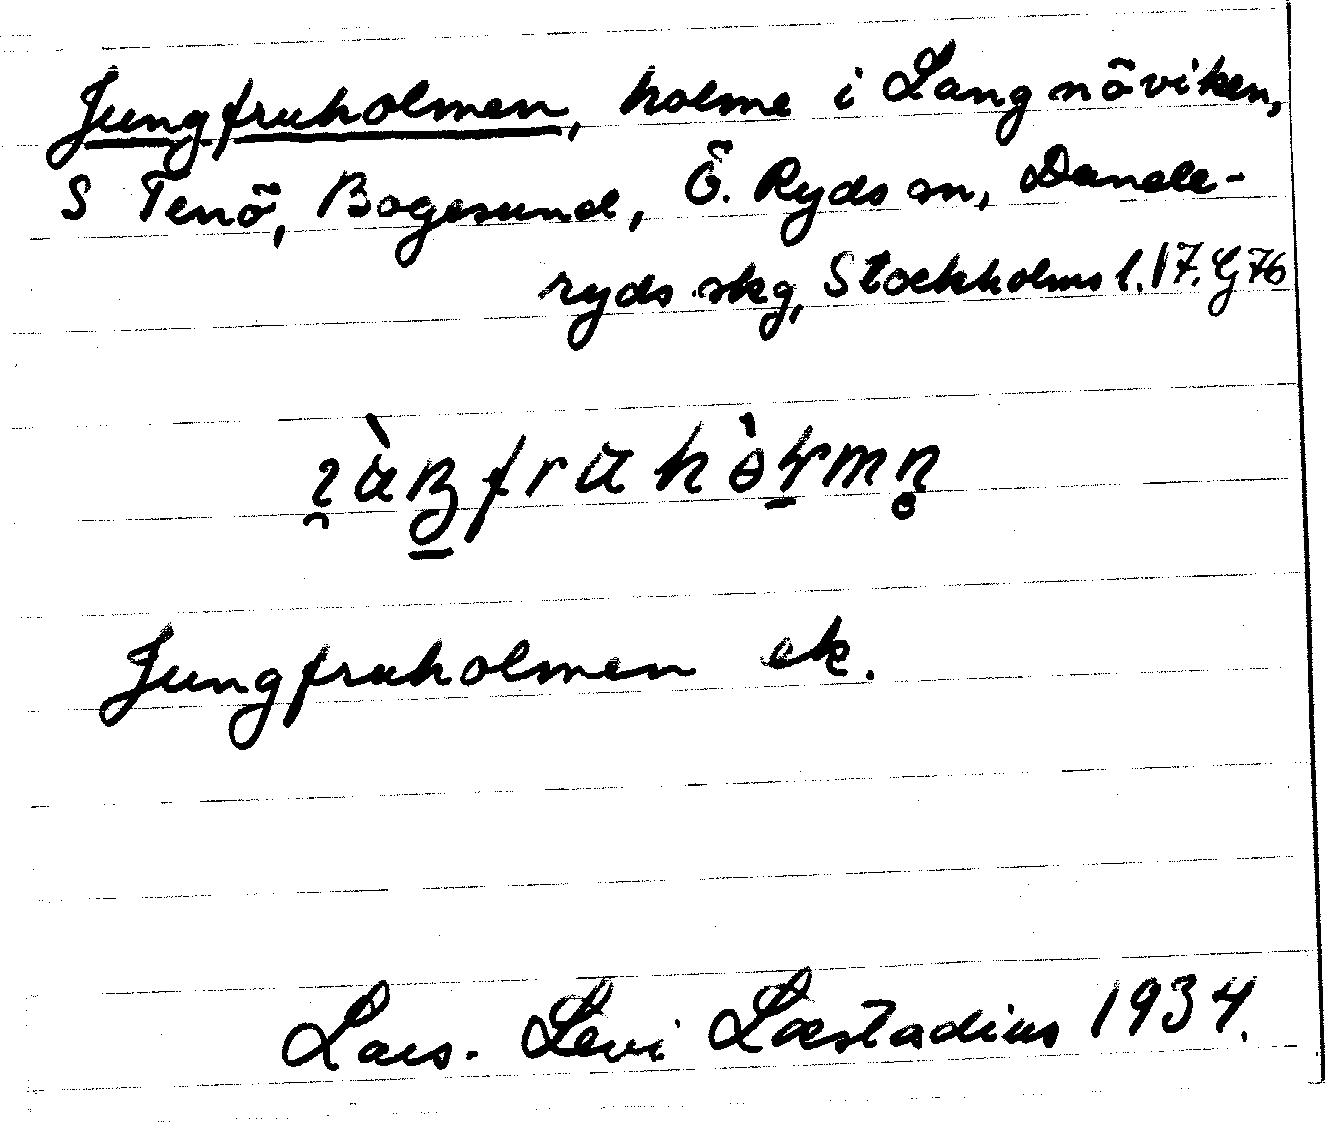 Jungfruholmen, holme i Langnöviken,
S Tenö, Bogesund, Ö. Ryds sn, Dande-
ryds skg, Stockholms l. 17. G 76
Jungfruholmen ek.
Lars-Levi Læstadius 1934.